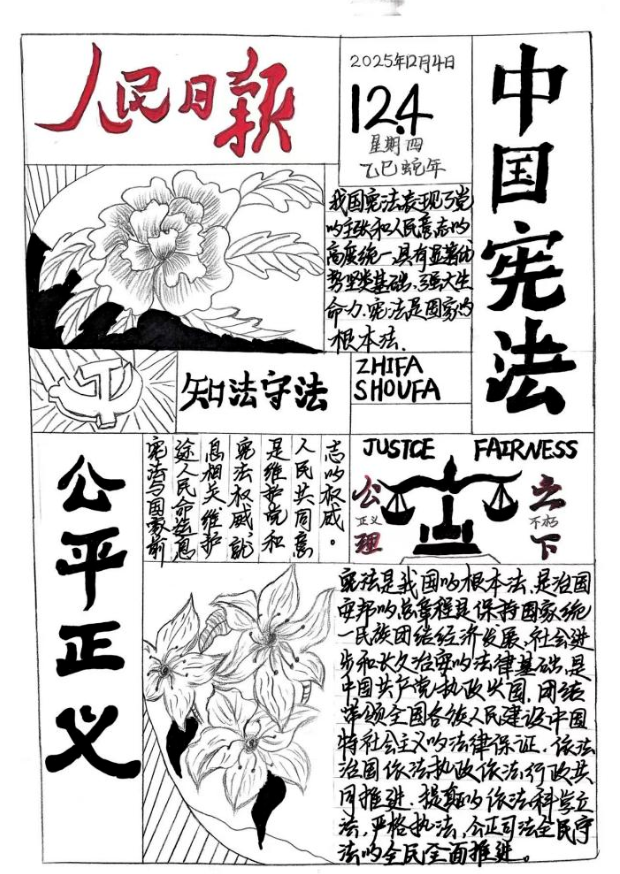 人民日报
2025年12月4日
12.4
星期四
乙巳蛇年
中国宪法
我国宪法表现了党
的主张和人民意志的
高度统一,具有显著优
势坚实基础,强大生
命力.宪法是国家的
根本法.
知法守法
ZHIFA
SHOUFA
公平正义
宪法与国家前
途人民命运息
息相关维护
宪法权威就
是维护党和
人民共同意
志的权威。
JUSTCE FAIRNESS
公
正义
理
立
不朽
下
宪法是我国的根本法,是治国
安邦的总章程是保持国家统
一民族团结经济发展、社会进
步和长久治安的法律基础,是
中国共产党执政兴国,团结
带领全国各族人民建设中国
特社会主义的法律保证.依法
治国依法执政依法行政共
同推进,提题的依法科学立
法,严格执法,公正司法全民守
法的全民全面推进。